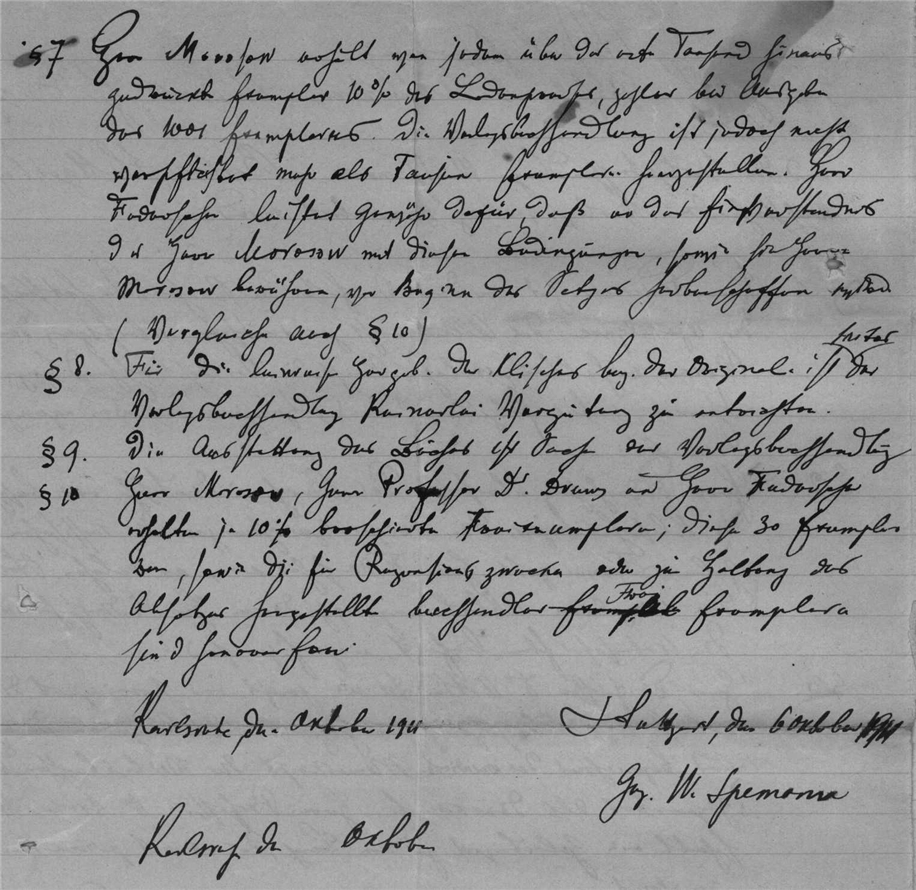 § 7 Herr Morosow erhält von jedem über das erste Tausend hinaus
gedruckte Exemplar 10 % des Ladenpreises, zahlbar bei Ausgabe
des 1001 Exemplares. Die Verlagsbuchhandlung ist jedoch nicht
verpflichtet mehr als Tausen Exemplare herzustellen. Herr
Fedorsche leistet Gewähr dafür, daß er das Einverständnis
der Herr Morosow mit diesen Bedingungen, sowie
Morosow vor Beginn des Satzes herbeischaffen
( Vergleiche auch § 10 )
§ 8. Für die leihweise Hergabe der Klisches bez. der Original. ist der
Verlagsbuchhandlung keinerlei Vergütung zu entrichten.
§ 9. Die Ausstattung des Buches ist Sache der Verlagsbuchhandlung
§ 10 Herr Morosow, Herr Professor Dr. Drews und Herr Fedorsche
erhalten je 10 broschierte Freiexemplare; diese 30 Exempla
ren, sowie die für Rezensionszwecke oder zu Hebung des
Absatzes hergestellte buchhändler Frei Exemplare
sind honorarfrei.
Karlsruhe, den Oktober 1911 Stuttgart, den 6 Oktober 1911
Gez. W. Spemann
Karlsruhe den Oktober